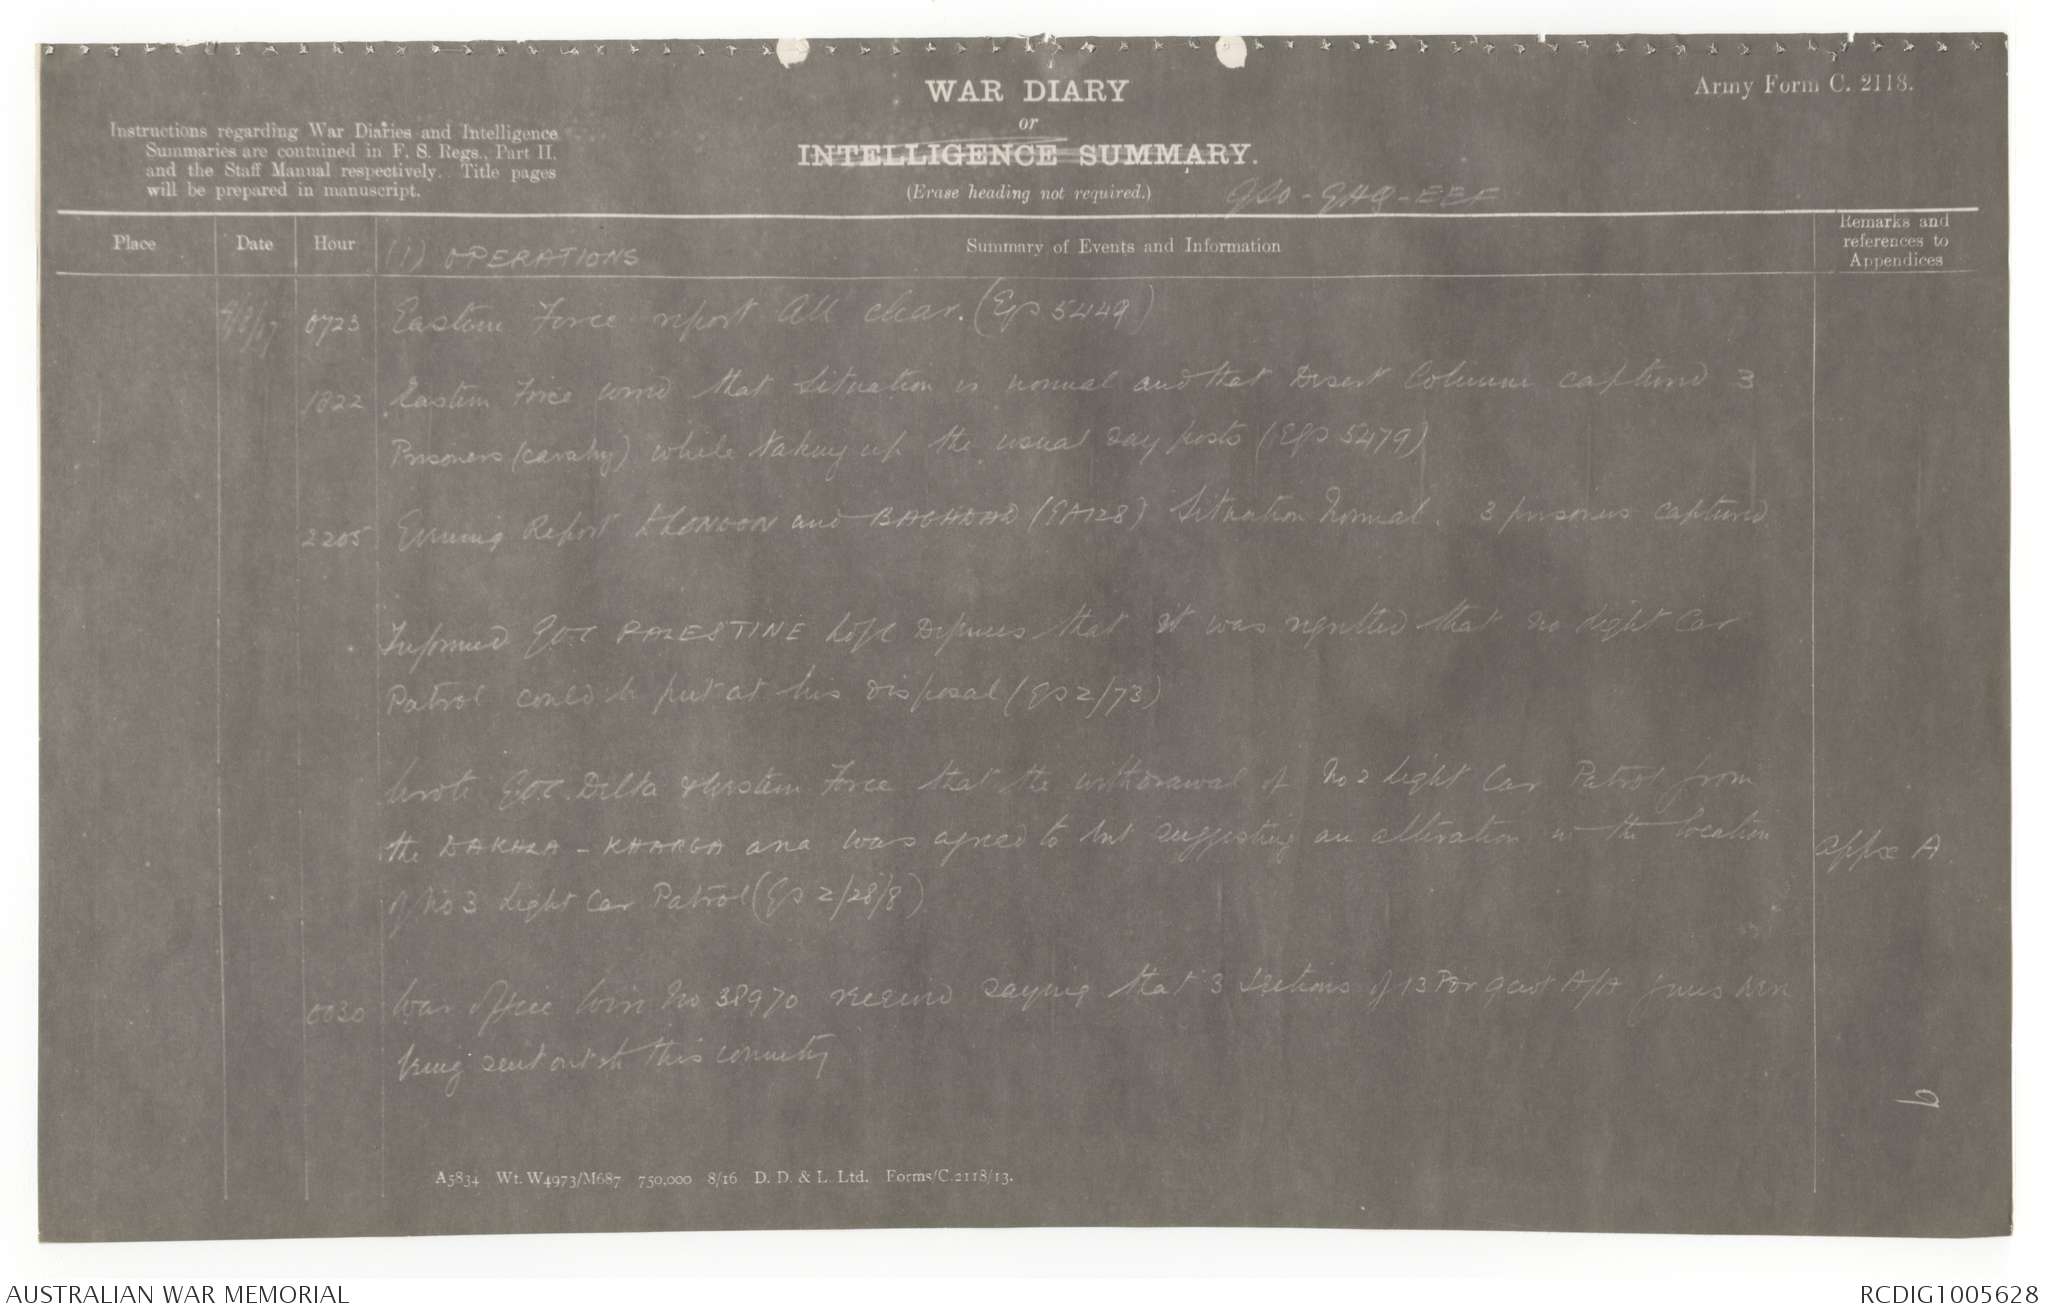 WAR DIARY
or
INTELLIGENCE SUMMARY.
(Erase heading not required.)
Army Form C. 2118.
Instructions regarding War Diaries and Intelligence
Summaries are contained in F. S. Regs., Part II.
and the Staff Manual respectively. Title pages
will be prepared in manuscript.
GSO - GHQ - EEF
Place
Date
Hour
(1) OPERATIONS
Summary of Events and Information
Remarks and
references to
Appendices
0723 Eastern Force report All clear. (EGS 5449)
1822 Eastern Force wired that Situation is normal and that Desert Column captured 3
Prisoners (cavalry) while taking up the usual day posts (EGS 5479)
2205 Evening Report to LONDON and BAGHDAD (EA128) Situation Normal. 3 prisoners captured
Informed GOC PALESTINE Defences that it was regretted that no Light Car
Patrol could be put at his disposal (GS 2/73)
Wrote G.O.C. Delta & Western Force that the withdrawal of No 2 Light Car Patrol from
the DAKHLA - KHARGA area was agreed to but suggesting an alteration in the location
of No 3 Light Car Patrol (GS 2/28/8)
Appx A
0030 War Office wire No 38970 received saying that 3 Sections of 13 Pdr 9 cwt A/A guns were
being sent out to this country
6
A5834 Wt. W4973/M687 750,000 8/16 D. D. & L. Ltd. Forms/C.2118/13.
AUSTRALIAN WAR MEMORIAL
RCDIG1005628